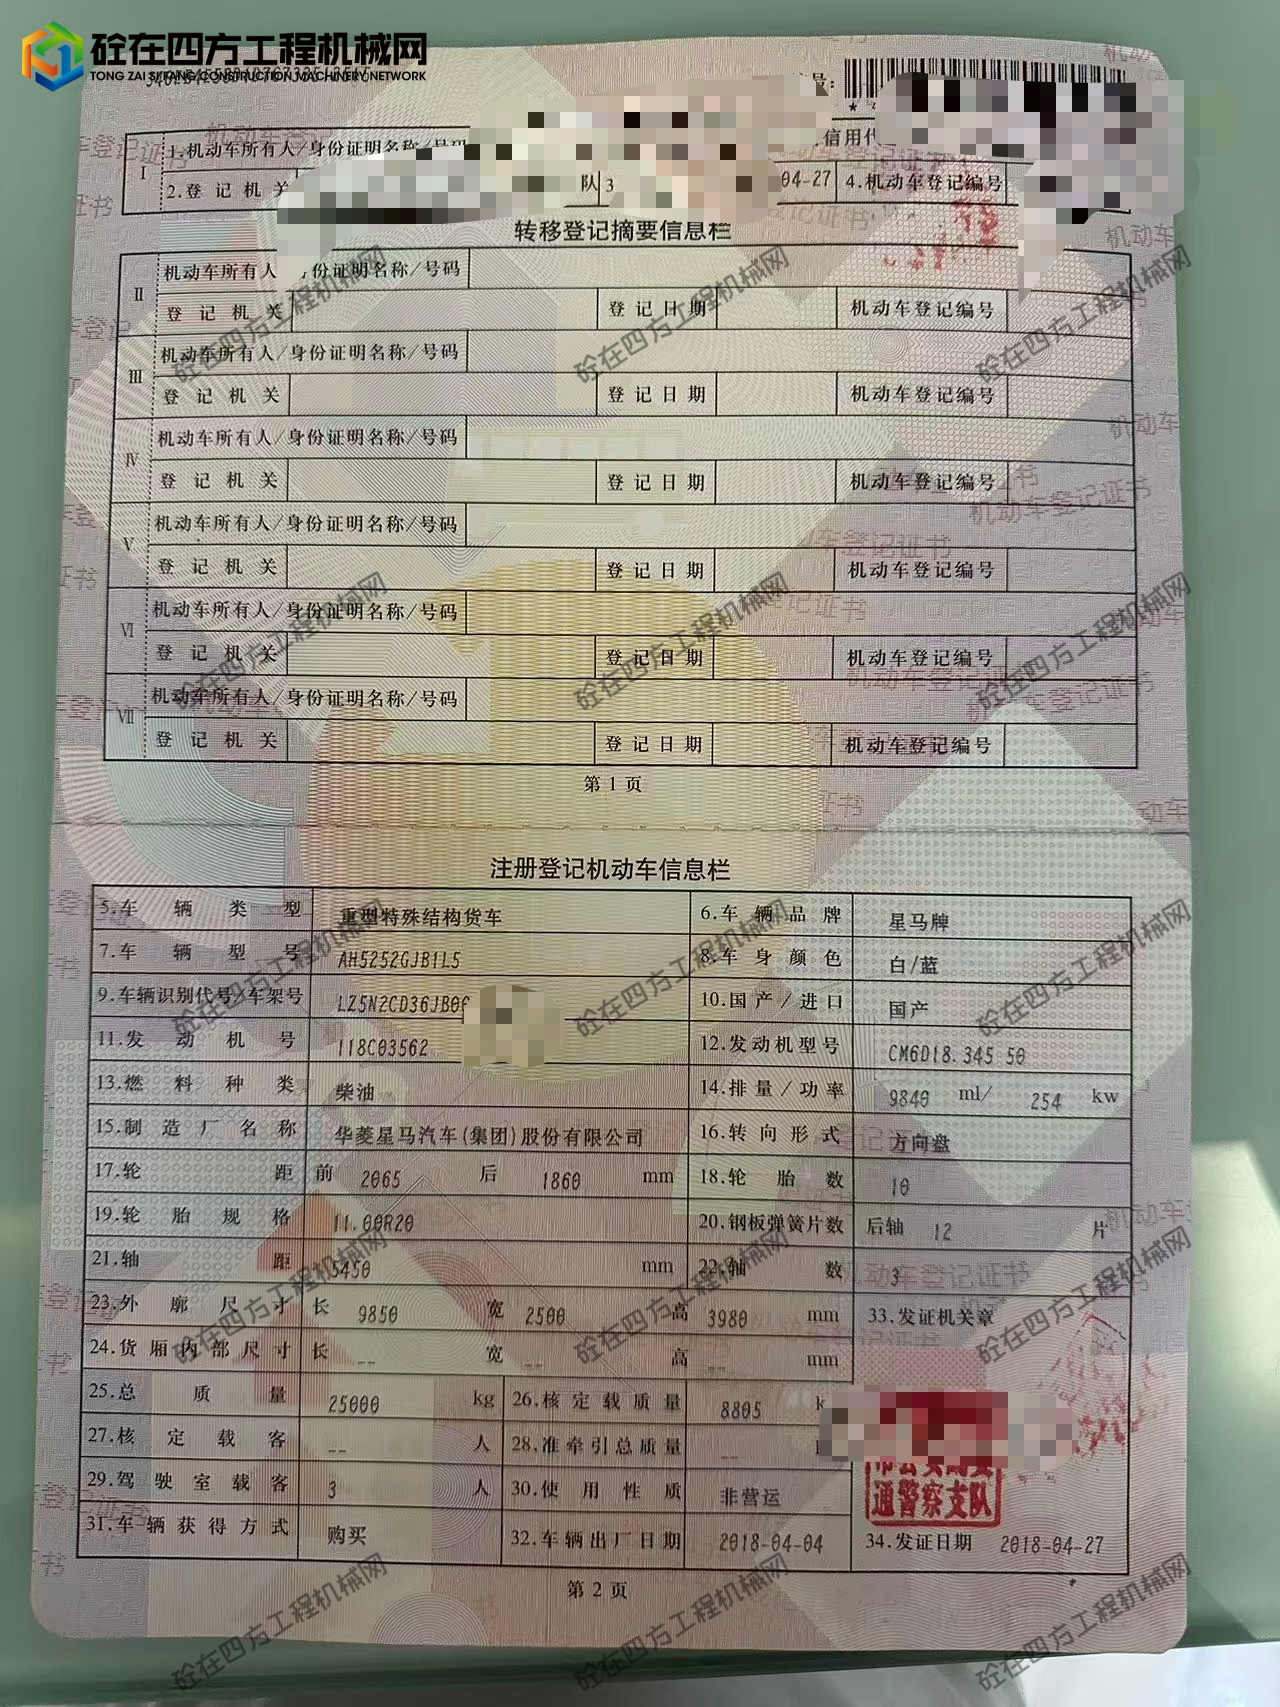 砼在四方工程机械网
TONG ZAI SI FANG CONSTRUCTION MACHINERY NETWORK
号:
I 1.机动车所有人/身份证明名称/号码 信用代
2.登记机关 队 3 04-27 4.机动车登记编号
转移登记摘要信息栏
II 机动车所有人 份证明名称/号码
登记机关 登记日期 机动车登记编号
III 机动车所有人/身份证明名称/号码
登记机关 登记日期 机动车登记编号
IV 机动车所有人/身份证明名称/号码
登记机关 登记日期 机动车登记编号
V 机动车所有人/身份证明名称/号码
登记机关 登记日期 机动车登记编号
VI 机动车所有人/身份证明名称/号码
登记机关 登记日期 机动车登记编号
VII 机动车所有人/身份证明名称/号码
登记机关 登记日期 机动车登记编号
第1页
注册登记机动车信息栏
5.车辆类型 重型特殊结构货车 6.车辆品牌 星马牌
7.车辆型号 AH5252GJB1L5 8.车身颜色 白/蓝
9.车辆识别代号/车架号 LZ5N2CD36JB0 10.国产/进口 国产
11.发动机号 118C03562 12.发动机型号 CM6D18.345 50
13.燃料种类 柴油 14.排量/功率 9840 ml/ 254 kw
15.制造厂名称 华菱星马汽车(集团)股份有限公司 16.转向形式 方向盘
17.轮距 前 2065 后 1860 mm 18.轮胎数 10
19.轮胎规格 11.00R20 20.钢板弹簧片数 后轴 12 片
21.轴距 5450 mm 22.轴数 3
23.外廓尺寸 长 9850 宽 2500 高 3980 mm 33.发证机关章
24.货厢内部尺寸 长 -- 宽 -- 高 -- mm
25.总质量 25000 kg 26.核定载质量 8805 k
27.核定载客 -- 人 28.准牵引总质量 --
29.驾驶室载客 3 人 30.使用性质 非营运
通警察支队
31.车辆获得方式 购买 32.车辆出厂日期 2018-04-04 34.发证日期 2018-04-27
第2页